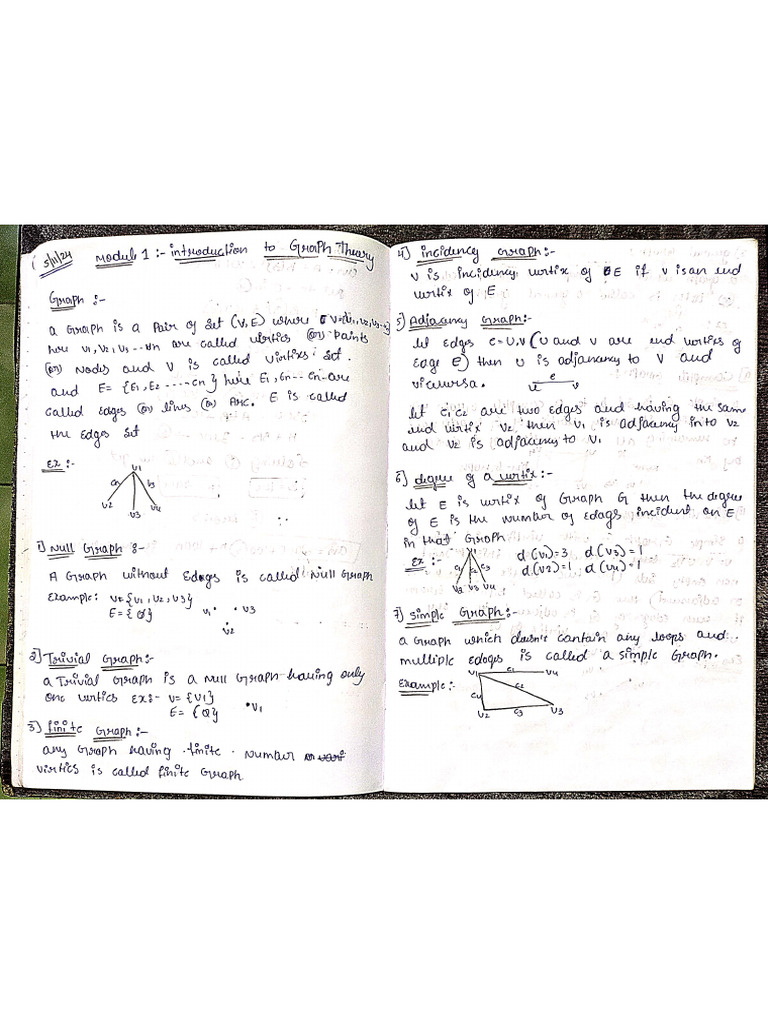 5/11/24
Module 1 :- introduction to Graph Theory
Graph :-
a Graph is a Pair of Set (V, E) where V={V1, V2, V3
here V1, V2, V3 ... Vn are called vertics (or) Paints
(or) Nodes and V is called virtixs set.
and E = {E1, E2 ---- en} here E1, En-- en are
called Edges (or) lines (or) Arc. E is called
the Edges set
Ex :-
V1
e1 e3
V2 V3 V4
1) Null Graph :-
A Graph without Edages is called Null Graph
Example: V={V1, V2, V3}
E = {Ø} V1 V3
V2
2) Trivial Graph :-
a Trivial Graph is a Null Graph having only
one vertics Ex:- V= {V1}
E = {Ø} V1
3) finite Graph :-
any Graph having finite Number
virtics is called finite Graph
4) incidency Graph :-
V is incidency vertix of E if V is an end
vertix of E
5) Adjacency Graph :-
let Edges e=U,V (U and V are end vertics of
Eage E) then U is adjanency to V and
viceversa.
e
u v
let e1 e2 are two edges and having the same
end vertix V2 then V1 is adjacency into V2
and V2 is adjacency to V1
6) degree of a vertix :-
let E is vertix of Graph G then the degree
of E is the number of edags incident on E
in that Graph
Ex :- V1 d(V1)=3 d(V3)=1
e1 e2 e3 d(V2)=1 d(V4)=1
V2 V3 V4
7) Simple Graph :-
a Graph which doesn't cantain any loops and
multiple edages is called a simple Graph.
Example :- V1 e1 V4
e4 e2
V2 e3 V3